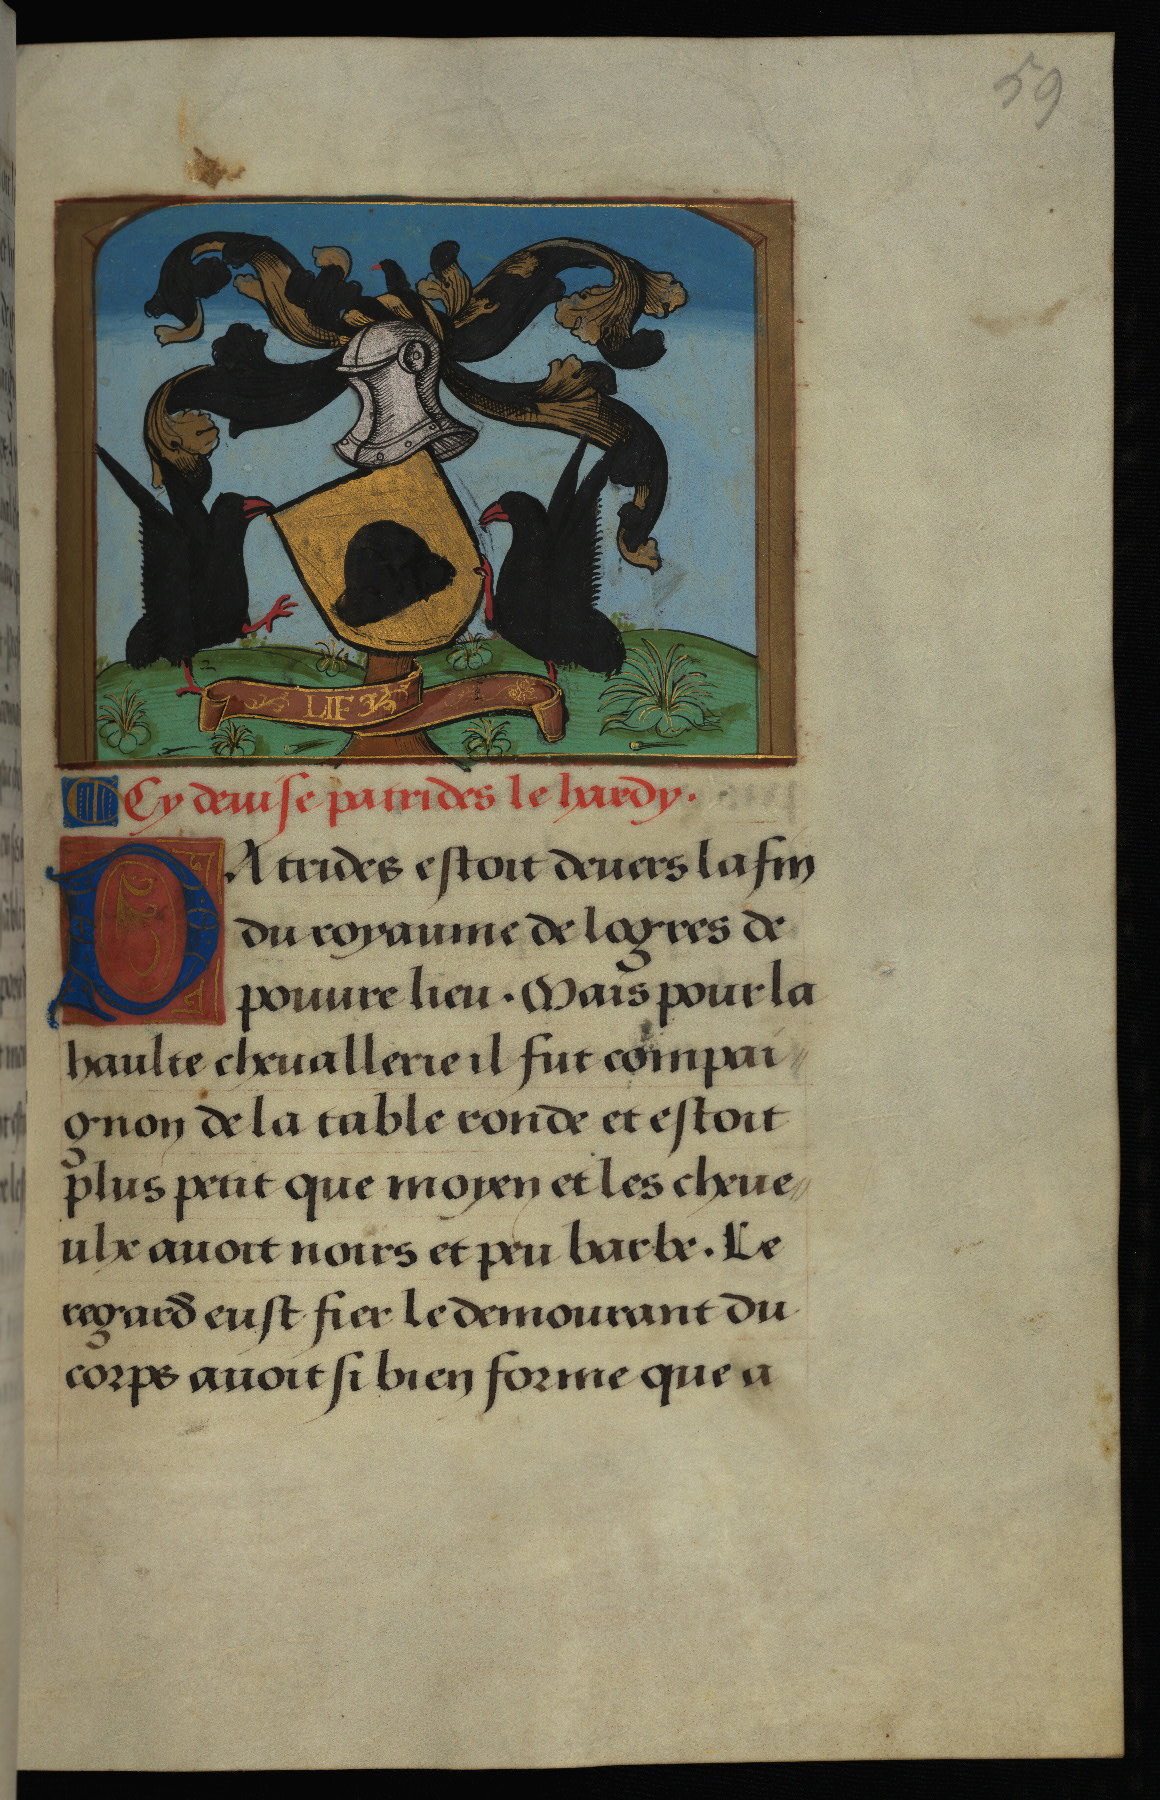 59
LIF
Cy deuise patrides le hardy.
PAtrides estoit deuers la fin
du royaume de logres de
pouure lieu. Mais pour la
haulte cheuallerie il fut compai
gnon de la table ronde et estoit
plus petit que moyen et les cheue
ulx auoit noirs et peu barbe. Le
regard eust fier le demourant du
corps auoit si bien forme que a